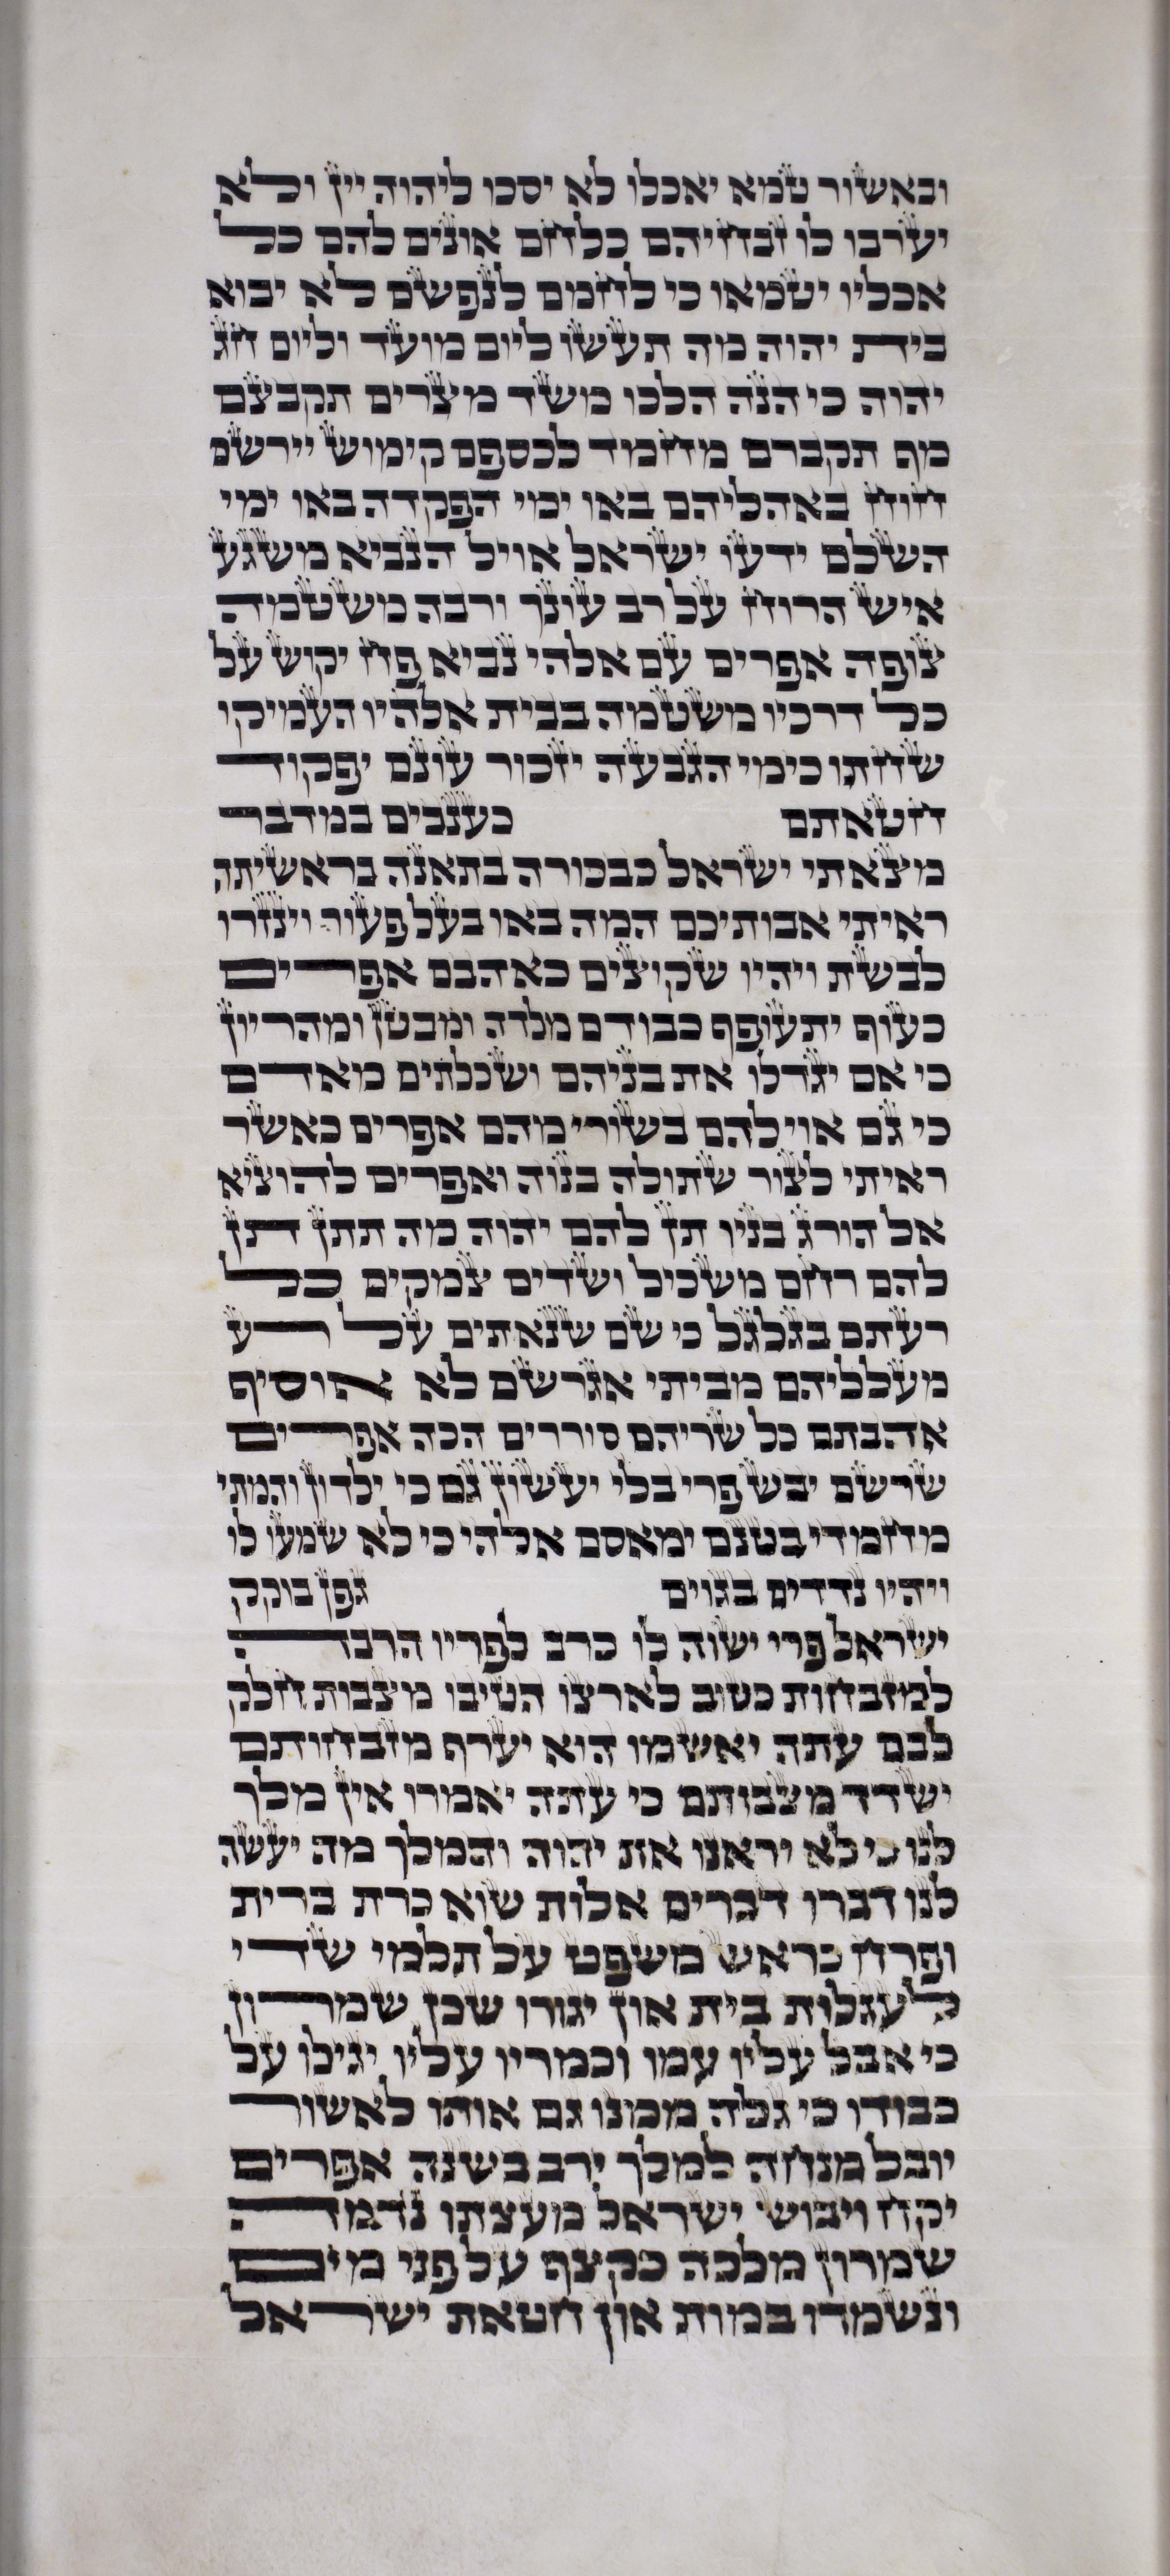 ובאשור טמא יאכלו לא יסכו ליהוה יין ולא
יערבו לו זבחיהם כלחם אונים להם כל
אכליו יטמאו כי לחמם לנפשם לא יבוא
בית יהוה מה תעשו ליום מועד וליום חג
יהוה כי הנה הלכו משד מצרים תקבצם
מף תקברם מחמד לכספם קימוש יירשם
חוח באהליהם באו ימי הפקדה באו ימי
השלם ידעו ישראל אויל הנביא משגע
איש הרוח על רב עונך ורבה משטמה
צופה אפרים עם אלהי נביא פח יקוש על
כל דרכיו משטמה בבית אלהיו העמיקו
שחתו כימי הגבעה יזכור עונם יפקוד
חטאתם כענבים במדבר
מצאתי ישראל כבכורה בתאנה בראשיתה
ראיתי אבותיכם המה באו בעל פעור וינזרו
לבשת ויהיו שקוצים כאהבם אפרים
כעוף יתעופף כבודם מלדה ומבטן ומהריון
כי אם יגדלו את בניהם ושכלתים מאדם
כי גם אוי להם בשורי מהם אפרים כאשר
ראיתי לצור שתולה בנוה ואפרים להוציא
אל הורג בניו תן להם יהוה מה תתן תן
להם רחם משכיל ושדים צמקים כל
רעתם בגלגל כי שם שנאתים על רע
מעלליהם מביתי אגרשם לא אוסיף
אהבתם כל שריהם סוררים הכה אפרים
שרשם יבש פרי בלי יעשון גם כי ילדון והמתי
מחמדי בטנם ימאסם אלהי כי לא שמעו לו
ויהיו נדדים בגוים גפן בוקק
ישראל פרי ישוה לו כרב לפריו הרבה
למזבחות כטוב לארצו הטיבו מצבות חלק
לבם עתה יאשמו הוא יערף מזבחותם
ישדד מצבותם כי עתה יאמרו אין מלך
לנו כי לא יראנו את יהוה והמלך מה יעשה
לנו דברו דברים אלות שוא כרת ברית
ופרח כראש משפט על תלמי שדי
לעגלות בית און יגורו שכן שמרון
כי אבל עליו עמו וכמריו עליו יגילו על
כבודו כי גלה ממנו גם אותו לאשור
יובל מנחה למלך ירב בשנה אפרים
יקח ויבוש ישראל מעצתו נדמה
שמרון מלכה כקצף על פני מים
ונשמדו במות און חטאת ישראל